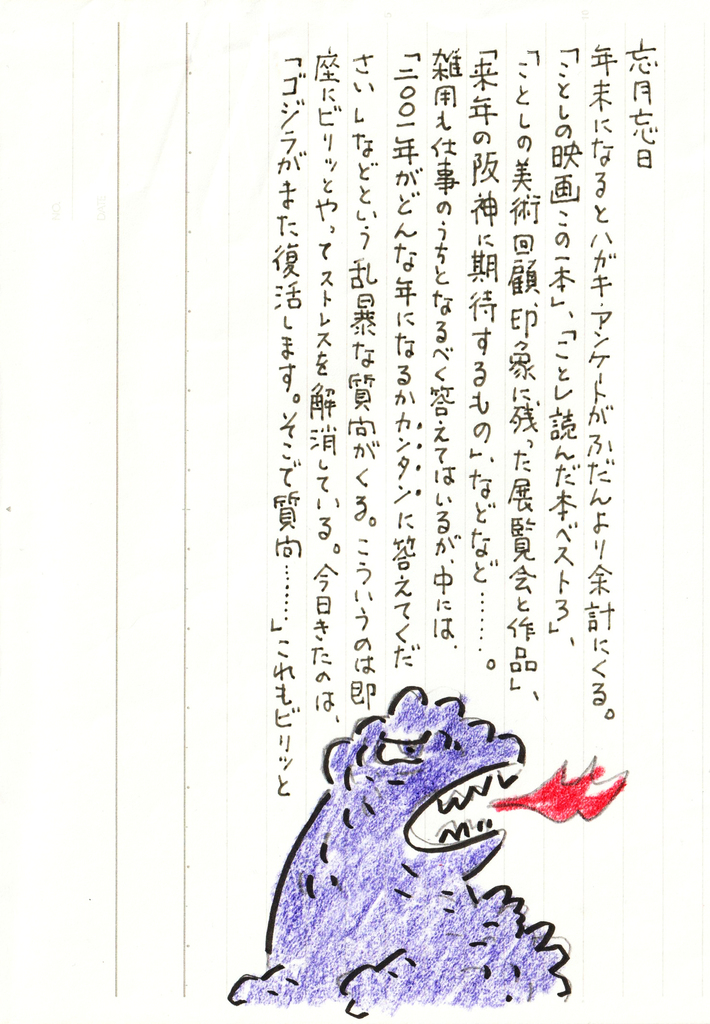 忘月忘日
年末になるとハガキ・アンケートがふだんより余計にくる。
「ことしの映画この一本」、「ことし読んだ本ベスト3」、
「ことしの美術回顧、印象に残った展覧会と作品」、
「来年の阪神に期待するもの」、などなど………。
雑用も仕事のうちとなるべく答えてはいるが、中には、
「二〇〇一年がどんな年になるかカンタンに答えてくだ
さい」などという乱暴な質问がくる。こういうのは即
座にビリッとやってストレスを解消している。今日きたのは、
「ゴジラがまた復活します。そこで質问………」これもビリッと